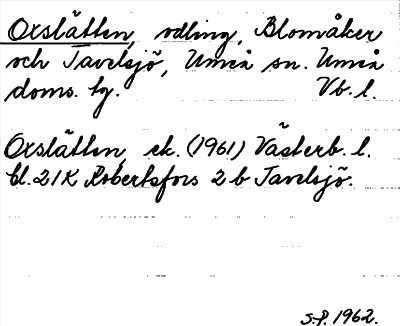 Oxslätten, odling, Blomåker
och Tavelsjö, Umeå sn. Umeå
doms. hg. Vb. l.
Oxslätten, ek. (1961) Västerb. l.
bl. 21K Robertsfors 2 b Tavelsjö.
S.P. 1962.